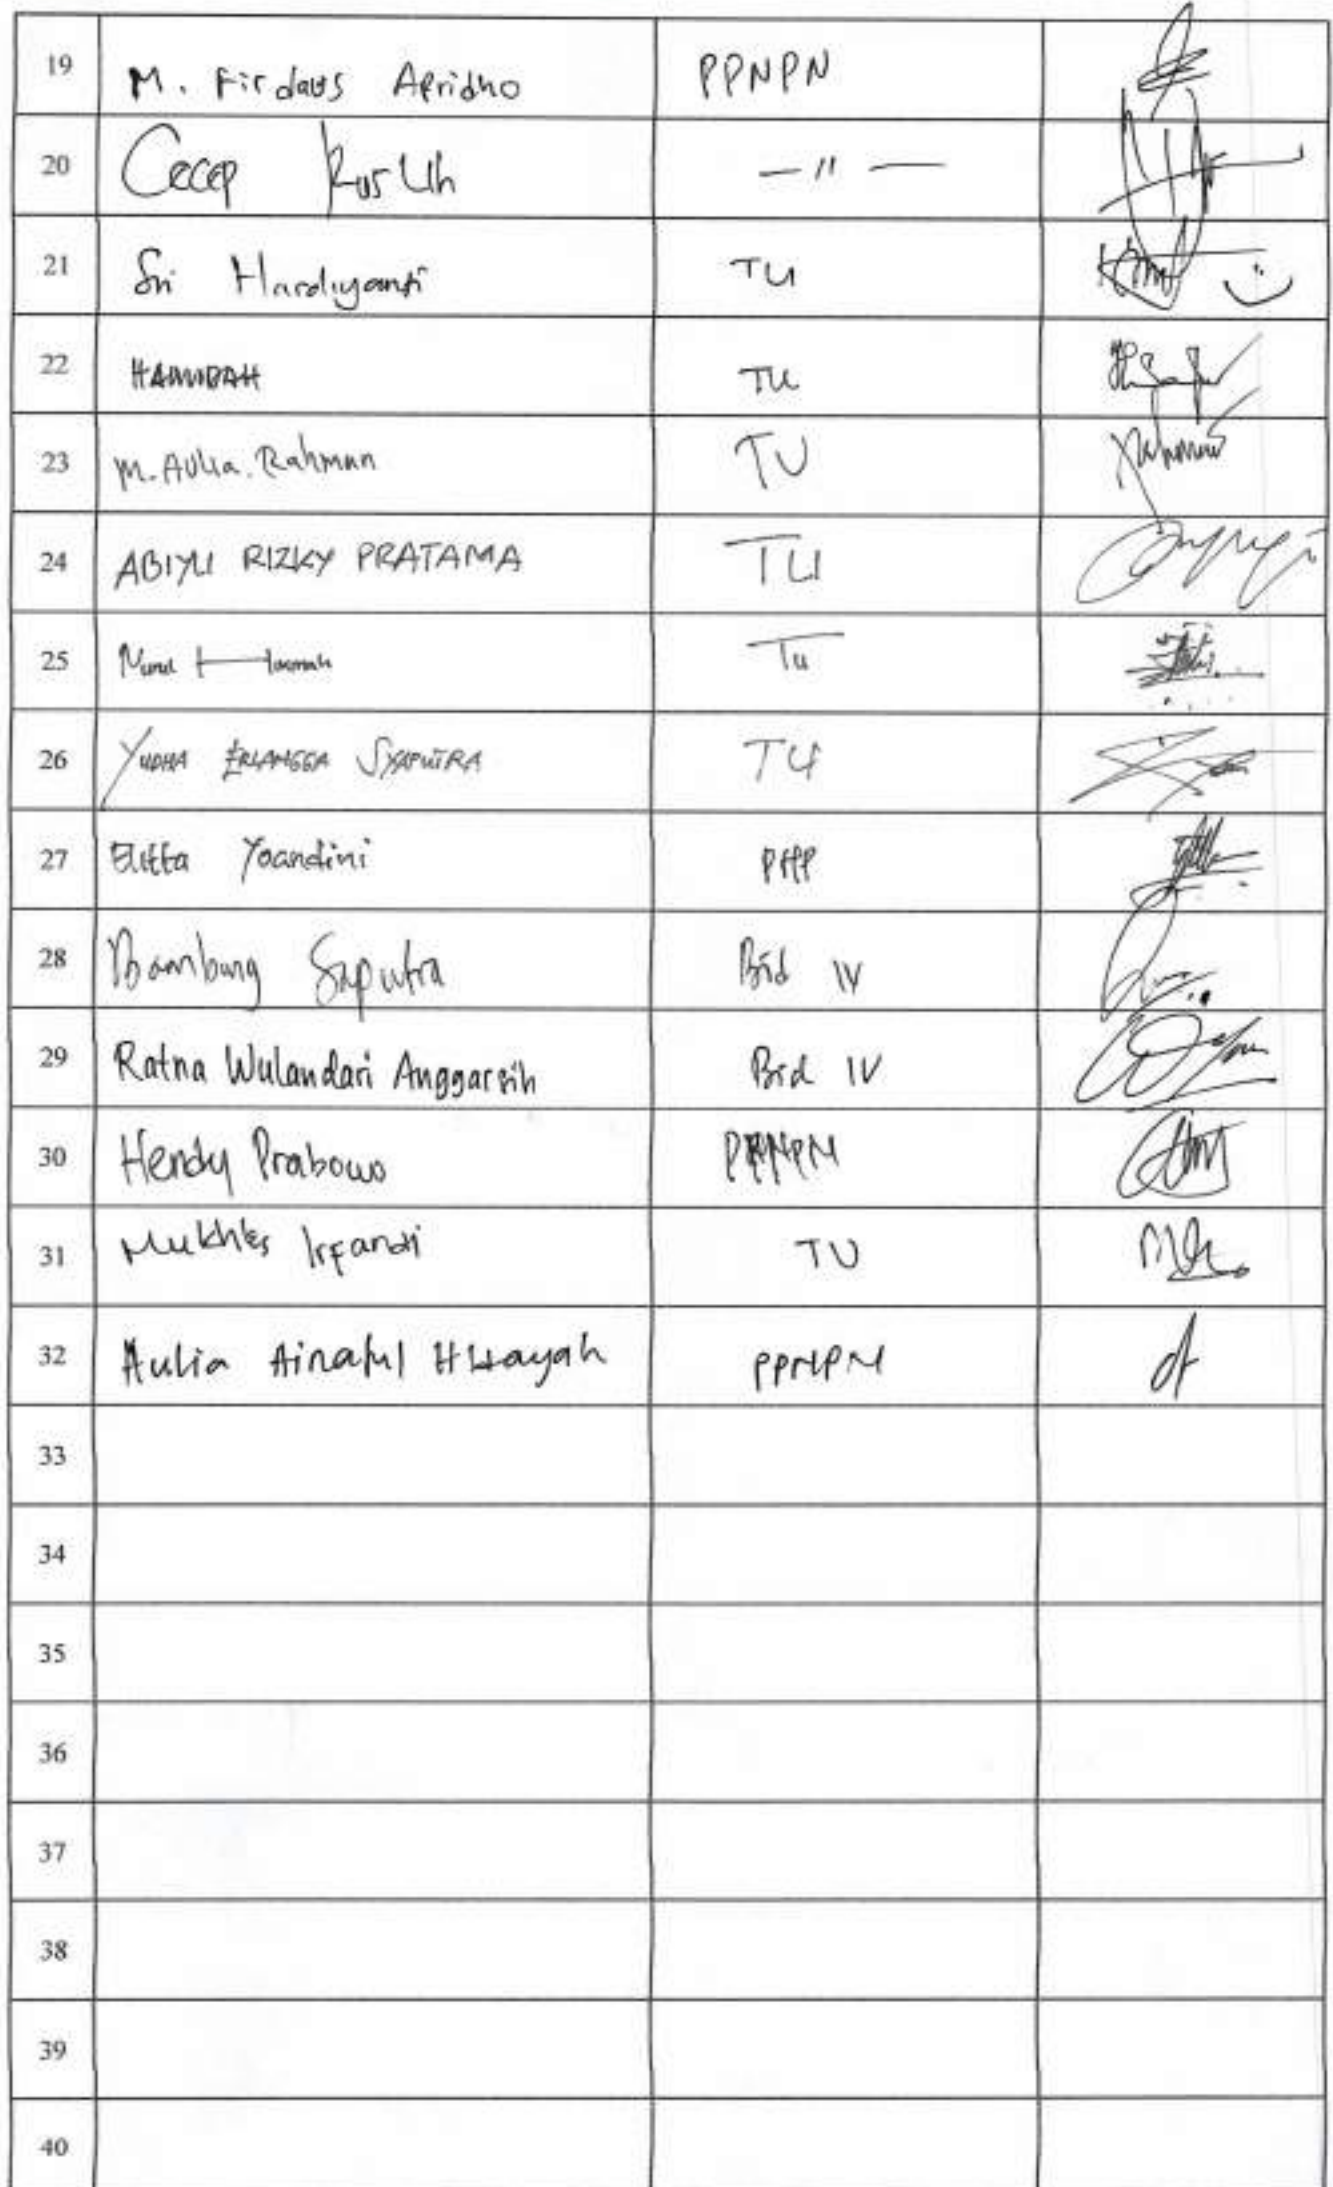 19 M. Firdaus Apridho PPNPN
20 Cecep Ruslih — " —
21 Sri Hardiyanti TU
22 HAMIDAH TU
23 M. Aulia. Rahman TU
24 ABIYU RIZKY PRATAMA TU
25 Nurul Hasanah TU
26 YUDHA ERLANGGA SYAPUTRA TU
27 Yoandini
28 Bambang Saputra Bid IV
29 Ratna Wulandari Anggarsih Bid IV
30 Hendy Prabowo PPNPN
31 Mukhlis Irfandi TU
32 Aulia Ainatul Hidayah PPNPN
33
34
35
36
37
38
39
40